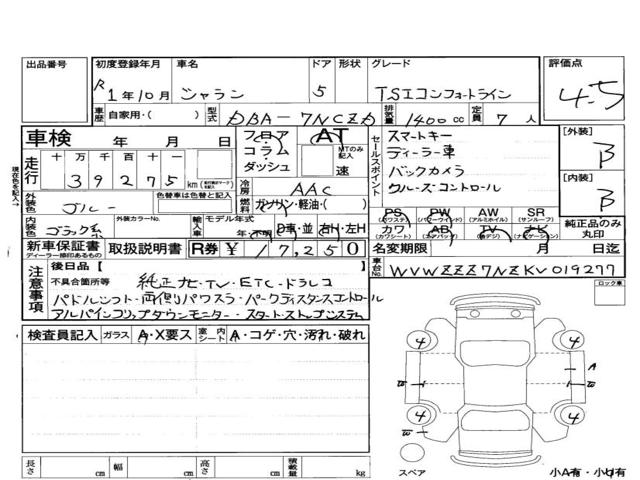 出品番号 初度登録年月 車名 ドア 形状 グレード 評価点
R1年10月 シャラン 5 TSIコンフォートライン 4.5
車歴 自家用・( ) 型式 DBA-7NCZD 排気量 1400cc 定員 7人
車検 年 月 日 フロア コラム ダッシュ AT MTのみ記入 速
セールスポイント スマートキー
ディーラー車
バックカメラ
クルーズ・コントロール
[外装] B
[内装] B
現在色を記入→
走行 十 万 千 百 十 一
39275 km
冷房 AAC
外装色 ブルー 色替車は色替と記入
燃料 ガソリン・軽油・( )
内装色 ブラック系 外装カラーNo. 輸入車 モデル年式 年・不明 D車・並 右H・左H
PS (パワステ) PW (パワーウインド) AW (アルミホイル) SR (サンルーフ)
カワ (カワシート) AB (エアバッグ) TV ナビ
純正品のみ丸印
新車保証書 ディーラー捺印あるもの 取扱説明書 R券 ¥17,250 名変期限 月 日迄
注意事項 後日品【 】
車台No. WVWZZZ7NZKV019277
不具合箇所等 純正ナビ・TV・ETC・ドラレコ
パドルシフト・両側パワスラ・パークディスタンスコントロール
アルパインフリップダウンモニター・スタートストップシステム
ロック車
検査員記入 ガラス A・X要ス 室内シート A・コゲ・穴・汚れ・破れ
4 4
A
W W
4 4
W
長さ cm 幅 cm 高さ cm 積載量 kg
スペア
小A有・小U有